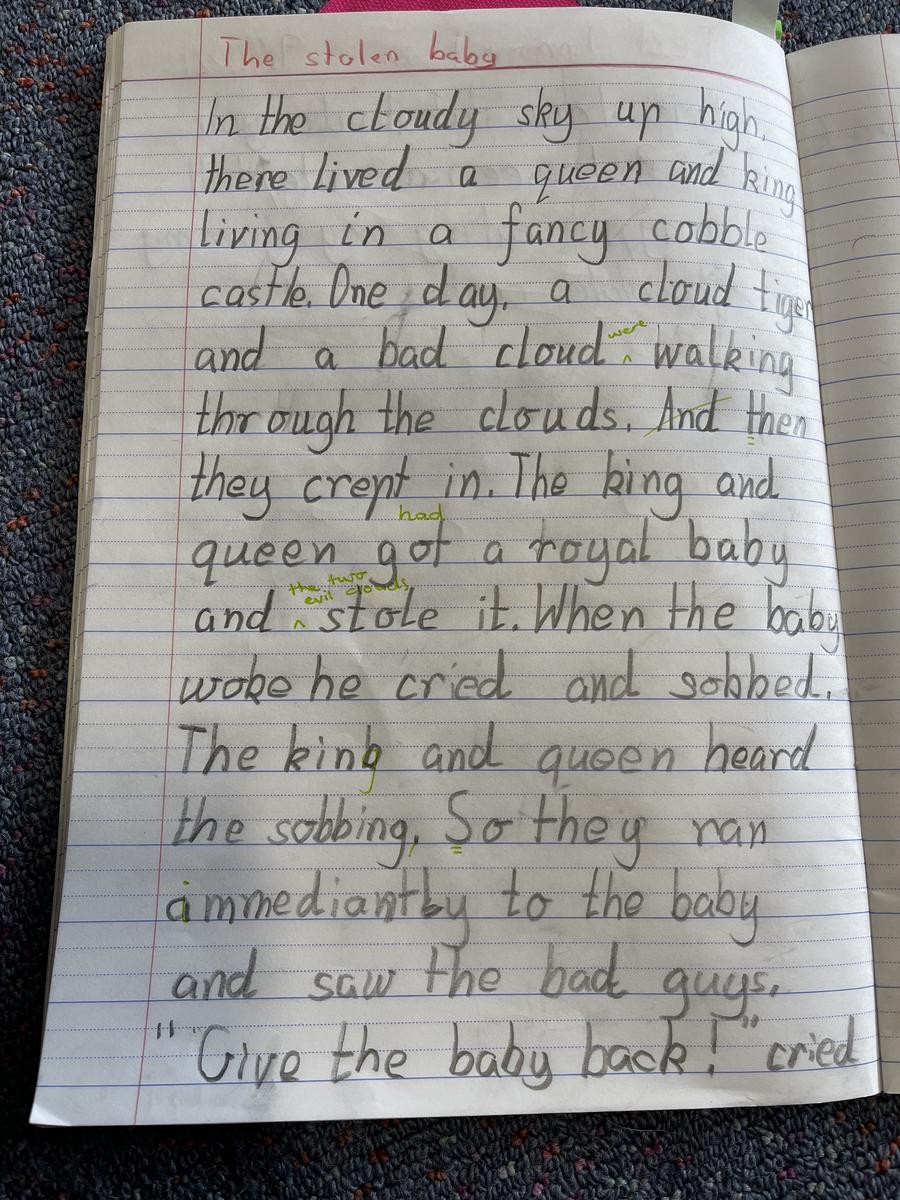 The stolen baby
In the cloudy sky up high,
there lived a queen and king
living in a fancy cobble
castle. One day, a cloud tiger
were
and a bad cloud walking
through the clouds. And then
they crept in. The king and
had
queen got a royal baby
the two
evil clouds
and stole it. When the baby
woke he cried and sobbed.
The king and queen heard
the sobbing, So they ran
immediantly to the baby
and saw the bad guys.
"Give the baby back!" cried